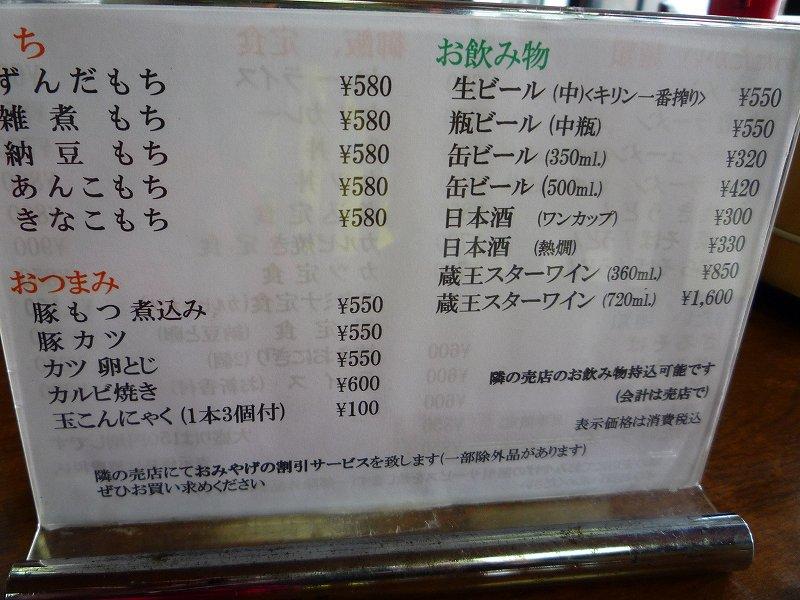 ち
ずんだもち ¥580
雑煮 もち ¥580
納豆 もち ¥580
あんこもち ¥580
きなこもち ¥580
おつまみ
豚もつ煮込み ¥550
豚カツ ¥550
カツ卵とじ ¥550
カルビ焼き ¥600
玉こんにゃく(1本3個付) ¥100
お飲み物
生ビール (中)<キリン一番搾り> ¥550
瓶ビール (中瓶) ¥550
缶ビール (350ml.) ¥320
缶ビール (500ml.) ¥420
日本酒 (ワンカップ) ¥300
日本酒 (熱燗) ¥330
蔵王スターワイン (360ml.) ¥850
蔵王スターワイン (720ml.) ¥1,600
隣の売店のお飲み物持込可能です
(会計は売店で)
表示価格は消費税込
隣の売店にておみやげの割引サービスを致します(一部除外品があります)
ぜひお買い求めください